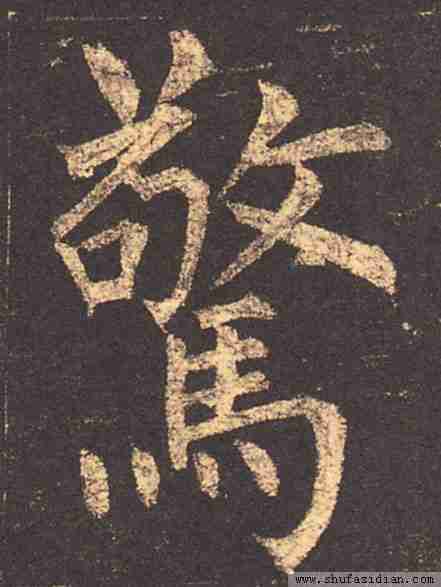 驚
www.shufazidian.com